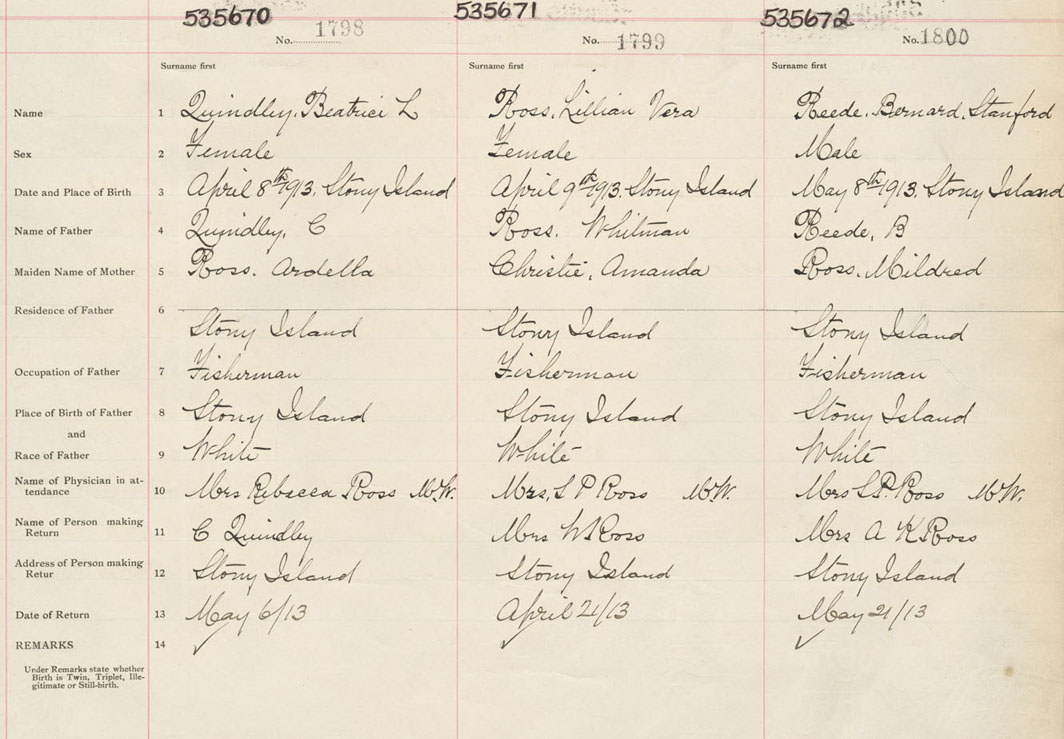 535670 535671 535672
No. 1798 No. 1799 No. 1800
Surname first Surname first Surname first
Name 1 Quindley, Beatrice L Ross, Lillian Vera Reede, Bernard, Stanford
Sex 2 Female Female Male
Date and Place of Birth 3 April 8th 1913. Stony Island April 9th 1913. Stony Island May 8th 1913. Stony Island
Name of Father 4 Quindley, C Ross. Whitman Reede, B
Maiden Name of Mother 5 Ross. Ardella Christie, Amanda Ross. Mildred
Residence of Father 6
Stony Island Stony Island Stony Island
Occupation of Father 7 Fisherman Fisherman Fisherman
Place of Birth of Father 8 Stony Island Stony Island Stony Island
and
Race of Father 9 White White White
Name of Physician in at-
tendance 10 Mrs Rebecca Ross M.W. Mrs. S P Ross M.W. Mrs S.P. Ross M.W.
Name of Person making
Return 11 C Quindley Mrs W Ross Mrs A K Ross
Address of Person making
Retur 12 Stony Island Stony Island Stony Island
Date of Return 13 May 6/13 April 21/13 May 21/13
REMARKS 14
Under Remarks state whether
Birth is Twin, Triplet, Ille-
gitimate or Still-birth.